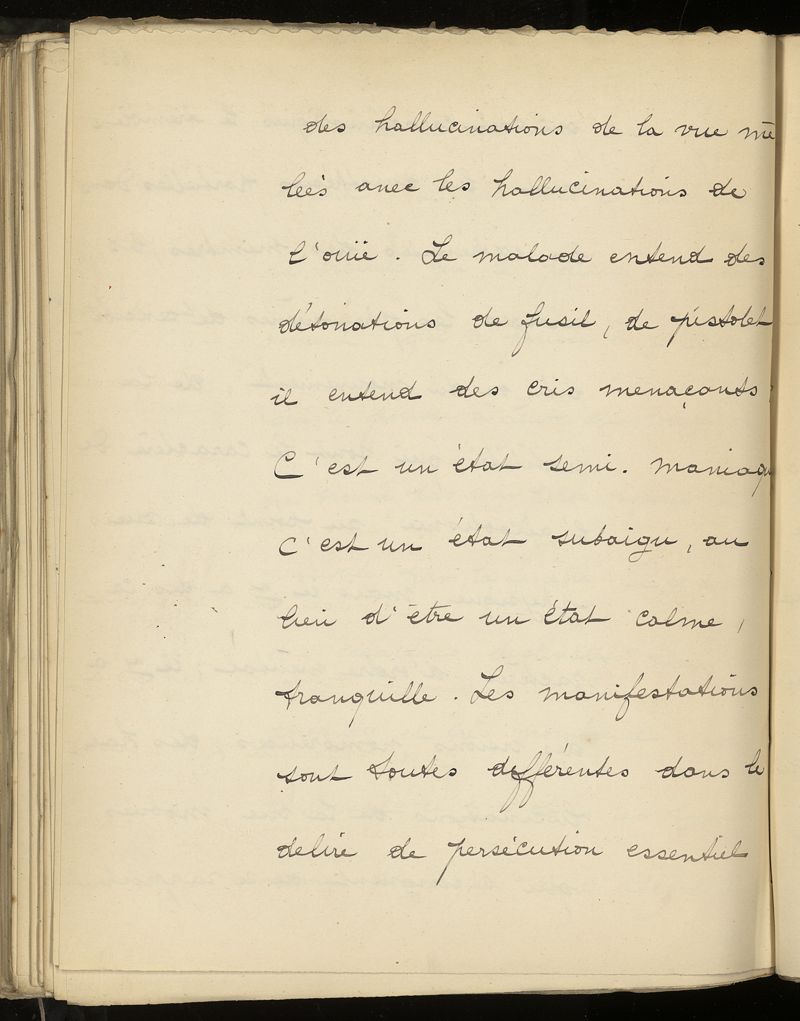 des hallucinations de la vue mê
lées avec les hallucinations de
l'ouïe. Le malade entend des
détonations de fusil, de pistolet
il entend des cris menaçants;
C'est un état semi. maniaqu
C'est un état subaigu, au
lieu d'être un état calme,
tranquille. Les manifestations
sont toutes différentes dans le
délire de persécution essentiel